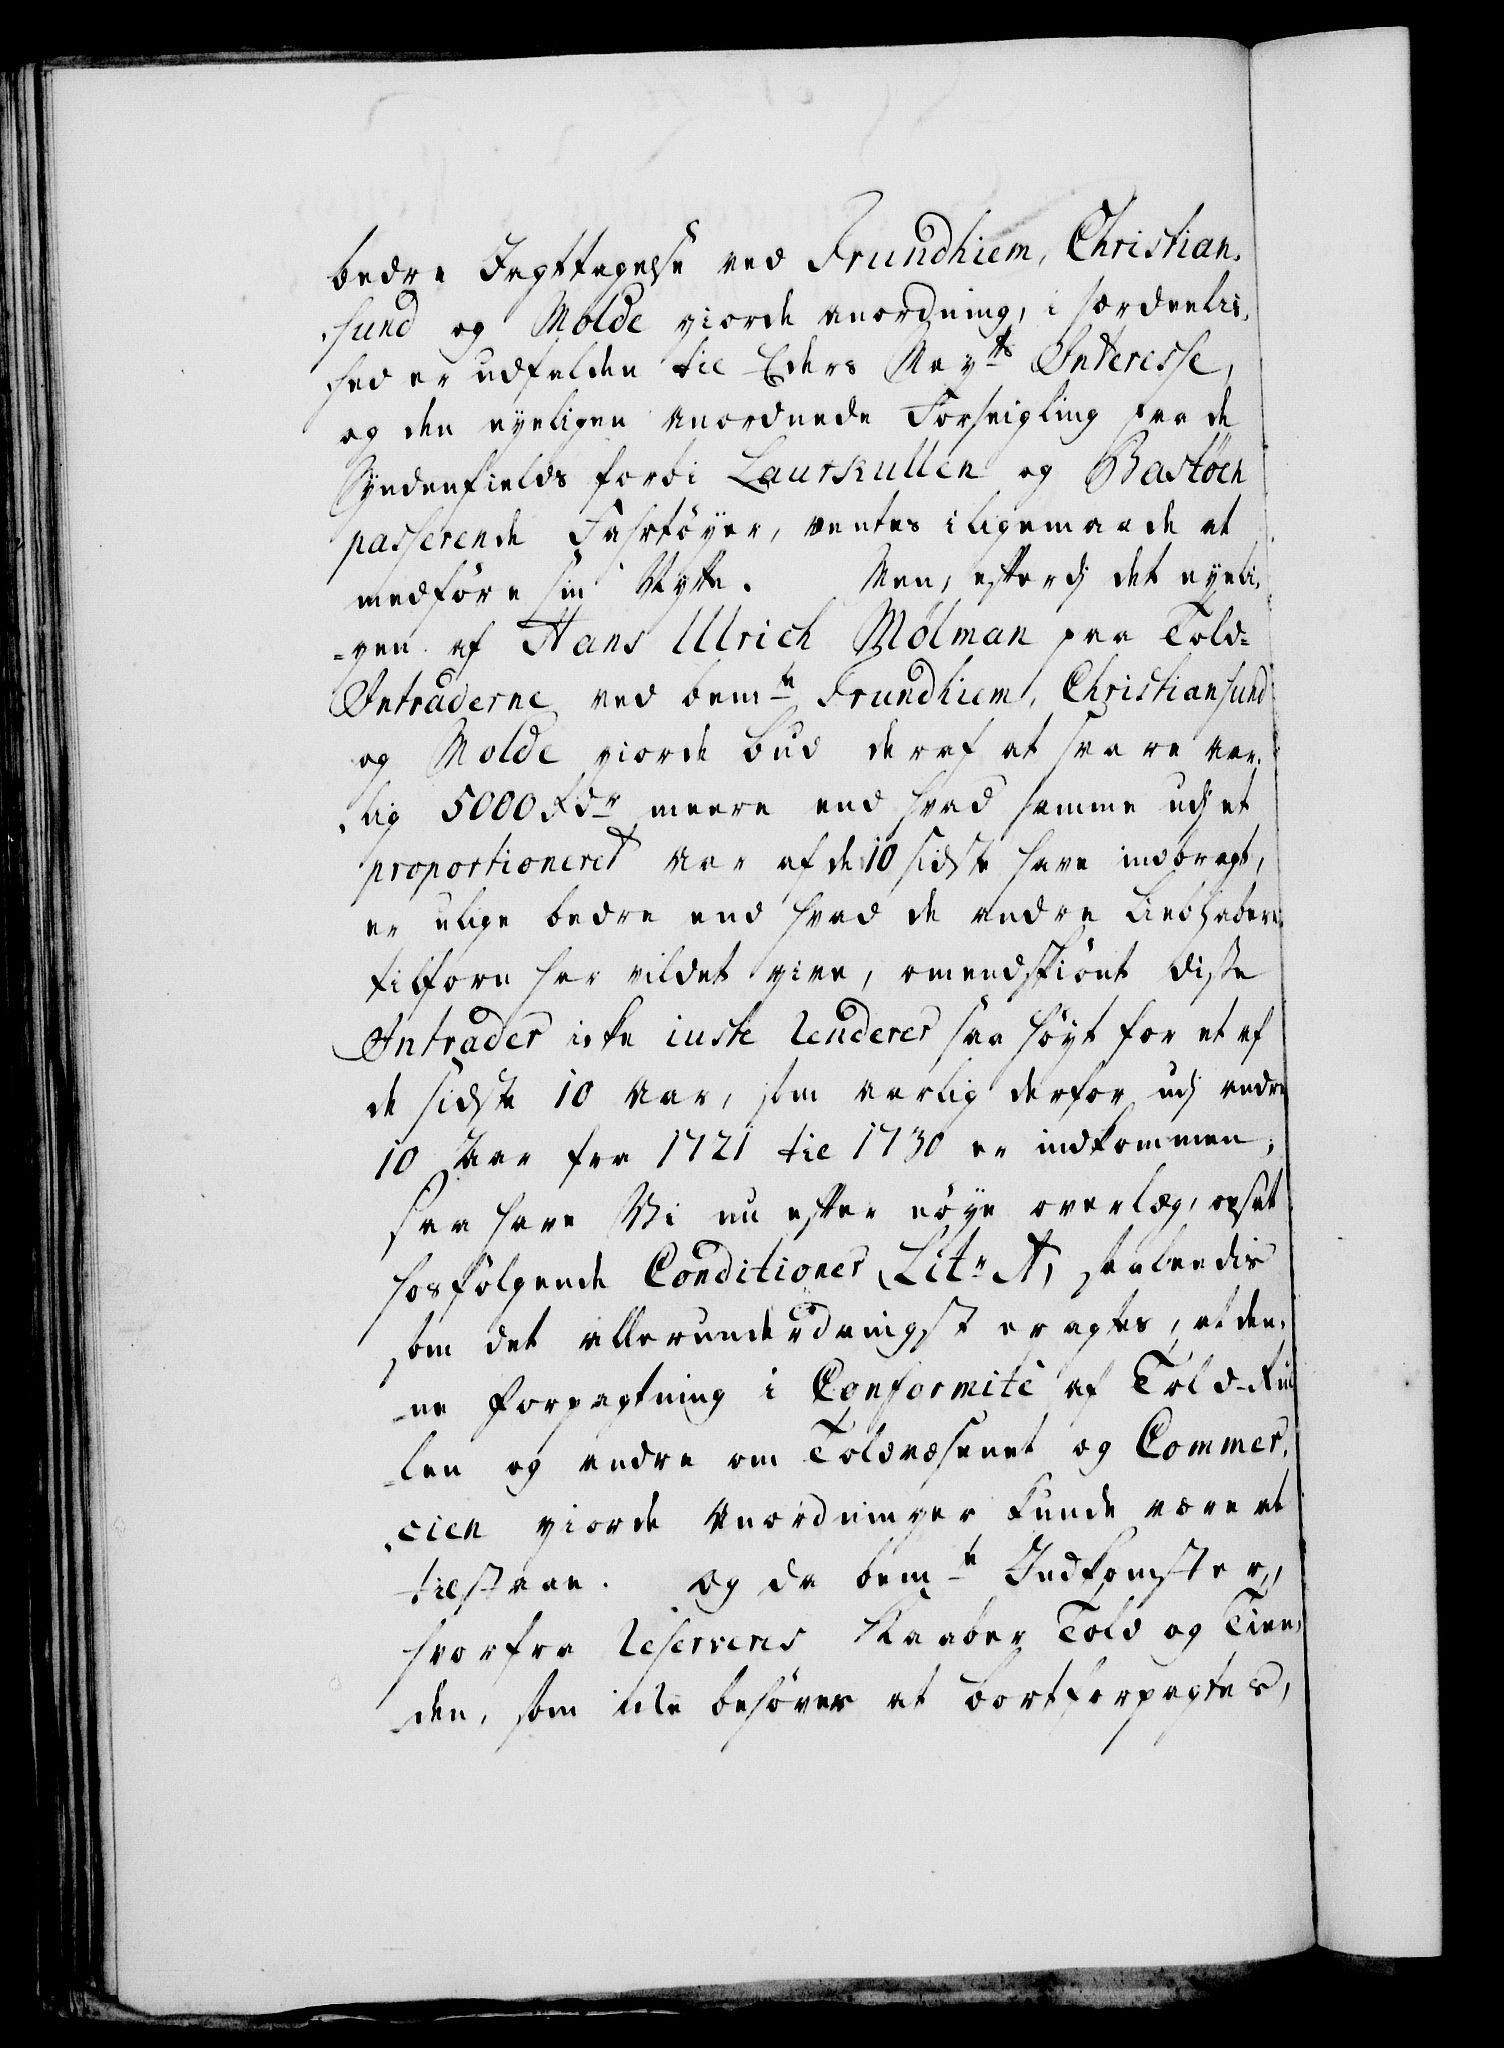 bedre Iagttagelse ved Trundhiem, Christian,
,sund og Molde giorde anordning, i særdeelis,
hed er udfalden til Eders Mayts Interesse,
og den nyeligen anordnede Forseigling paa de
Syndenfields forbi Laurkullen og Bastöen
passerende Fahrtöyer, ventes iligemaade at
medföre sin Nytte. Men, efterdj det nyeli,
-gen af Hans Ulrich Mølman paa Told=
Intraderne ved bemte Trundhiem, Christiansund
og Molde giorde bud deraf at svare aar,
,lig 5000 Rdr meere end hvad samme udj et
proportioneret Aar af de 10 sidste have indbragt,
er ulige bedre end hvad de andre Liebhabere
tilforn har vildet give, omendskiönt disse
Intrader icke iuste renderer saa höyt for et af
de sidste 10 Aar, som aarlig derfor udj andre
10 Aar fra 1721 til 1730 er indkommen;
Saa have Vi nu efter nöye overlæg, opsat
hosfölgende Conditioner Litr A, saaleedis
som det allerunderdanigst eragtes, at den,
-ne Forpagtning i Conformité af Told-Rul
-len og andre om Toldvæsenet og Commer,
,cien giorde Anordninger kunde være at
tilstaae. Og da bemte Indkomster,
hvorfra reserveres Kaaber Told og Tien,
-den, som icke behöver at bortforpagtes,